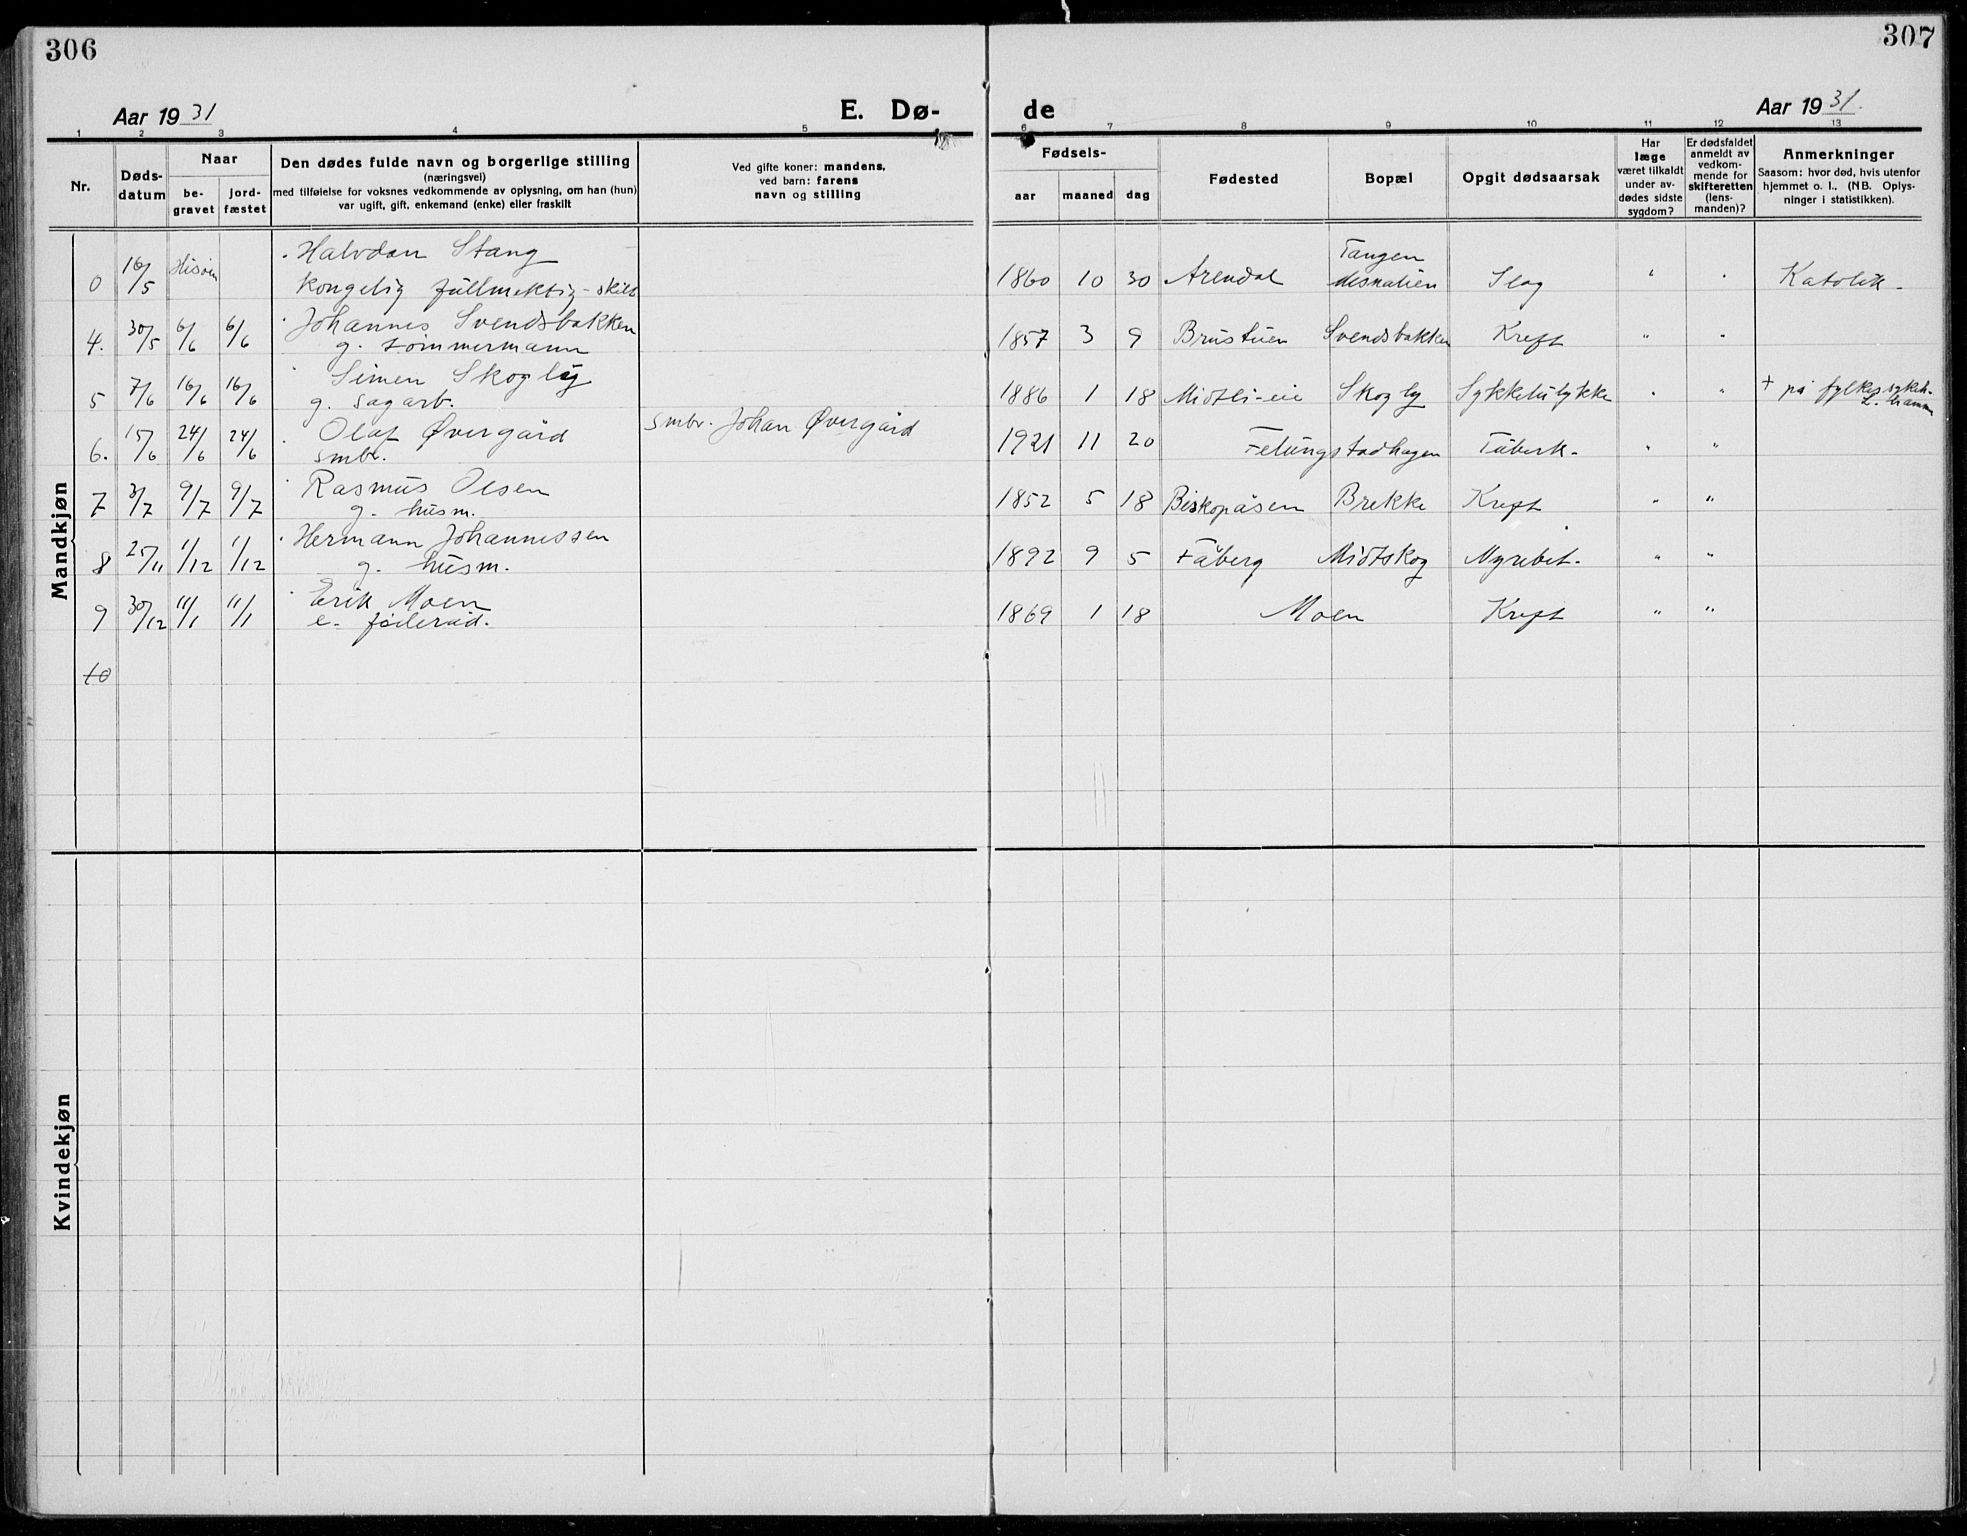 306
307
Aar 1931
E. Dø-
de
Aar 1931.
1 2 3 4 5 6 7 8 9 10 11 12 13
Nr.
Døds-
datum
Naar
be-
gravet
jord-
fæstet
Den dødes fulde navn og borgerlige stilling
(næringsvei)
med tilføielse for voksnes vedkommende av oplysning, om han (hun)
var ugift, gift, enkemand (enke) eller fraskilt
Ved gifte koner: mandens,
ved barn: farens
navn og stilling
Fødsels-
aar
maaned
dag
Fødested
Bopæl
Opgit dødsaarsak
Har
læge
været tilkaldt
under av-
dødes sidste
sygdom?
Er dødsfaldet
anmeldt av
vedkom-
mende for
skifteretten
(lens-
manden)?
Anmerkninger
Saasom: hvor død, hvis utenfor
hjemmet o. l., (NB. Oplys-
ninger i statistikken).
Mandkjøn
0 16/5 Hisøen Halvdan Stang
kongelig fullmektig - skilt
1860 10 30 Arendal Tangen
Slag " " Katolik.
4. 30/5 6/6 6/6 Johannes Svendsbakken
g. tømmermann
1857 3 9 Brustuen Svendsbakken Kreft " "
5 7/6 16/6 16/6 Simen Skogly
g. sagarb.
1886 1 18 Midtli-eie Skogly Sykkelulykke " " + på fylkessykeh.
L.hammer
6. 15/6 24/6 24/6 Olaf Øvergård
smbr.
smbr. Johan Øvergård
1921 11 20 Felungstadhagen Tuberk. " "
7 3/7 9/7 9/7 Rasmus Olsen
g. husm.
1852 5 18 Biskopåsen Brekke Kreft " "
8 25/11 1/12 1/12 Hermann Johannessen
g. husm.
1892 9 5 Fåberg Midtskog Nyrebet. " "
9 30/12 11/1 11/1 Erik Moen
e. føderåd.
1869 1 18 Moen Kreft " "
10
Kvindekjøn